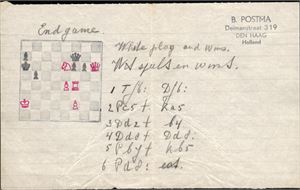 End game.
B. POSTMA
Deimanstraat 319
DEN HAAG
Holland
White play and wins.
Wit speelt en wint.
1 Tf6: Df6:
2 Pc5† Ka5
3 Dd2† b4
4 Dd8† Dd8:
5 Pb7† Kb5
6 Pd8: